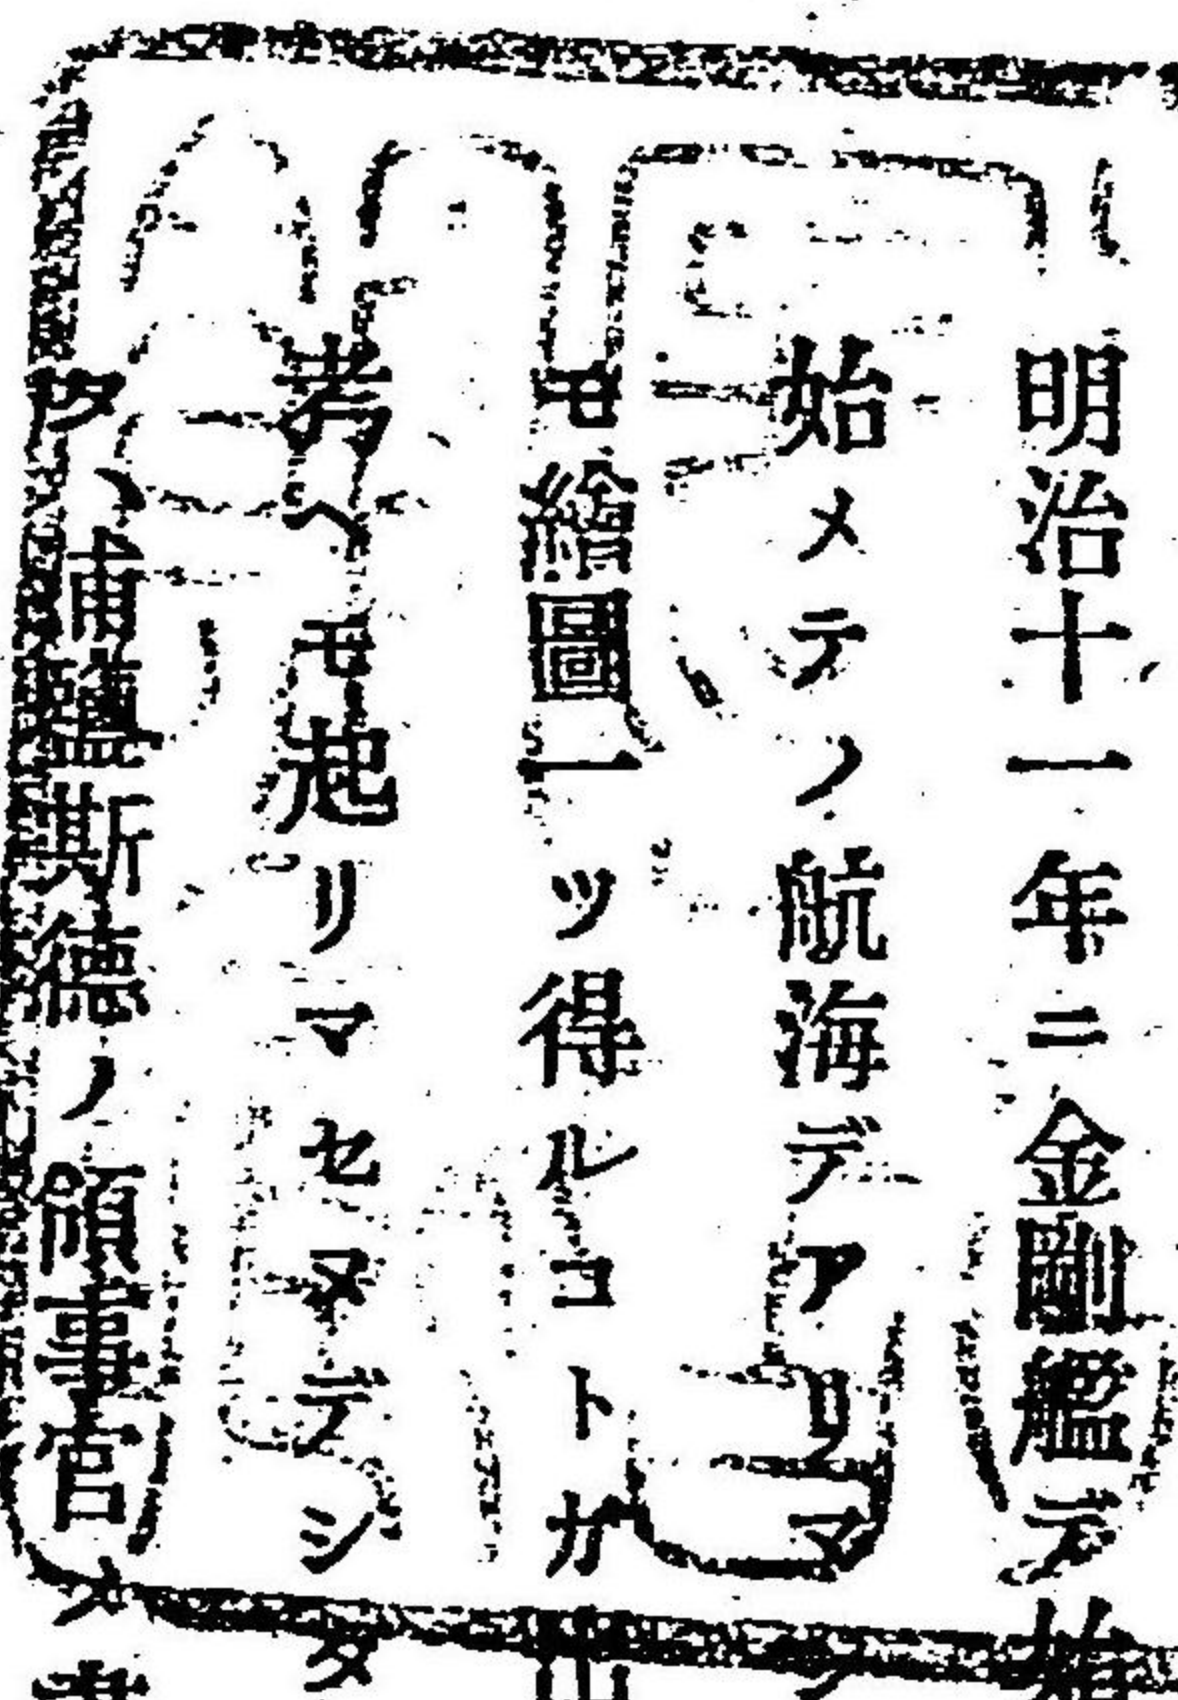 明治十一年ニ金剛艦デ
始メテノ航海デアリマ
モ繪圖一ツ得ルコトガ
考ヘモ起リマセヌデシタ
タヽ浦鹽斯德ノ領事官